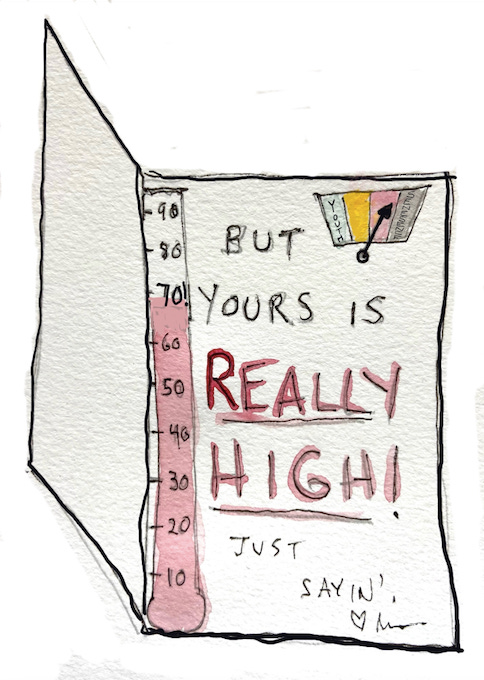 90
80
70!
60
50
40
30
20
10
YOUTH
BUT
YOURS IS
REALLY
HIGH!
JUST
SAYIN'.